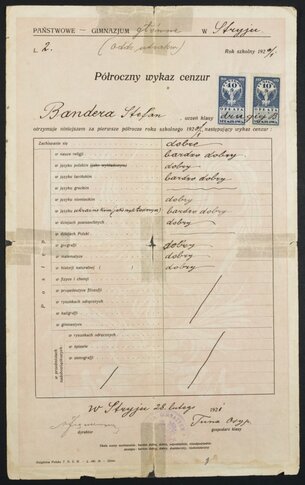 PAŃSTWOWE - GIMNAZJUM główne W Stryju
L. 2. (Oddz. ) Rok szkolny 1920/1
Półroczny wykaz cenzur
40 40
OPŁATA OPŁATA
Bandera Stefan, uczeń klasy drugiej B
otrzymuje niniejszem za pierwsze półrocze roku szkolnego 1920/1 następujący wykaz cenzur:
Zachowanie się dobre
Postęp
w nauce religji bardzo dobry
w języku polskim (jako wykładowym) dobry
w języku łacińskim bardzo dobry
w języku greckim
w języku niemieckim dobry
w języku ukraińskim (jako wykładowym) bardzo dobry
w dziejach powszechnych dobry
w dziejach Polski
w geografji dobry
w matematyce dobry
w historji naturalnej dobry
w fizyce i chemji
w propedeutyce filozofji
w rysunkach odręcznych
w kaligrafji
w gimnastyce
w przedmiotach nadobowiązkowych
w rysunkach odręcznych
w śpiewie
w stenografji
W Stryju 28. lutego 1921
dyrektor
gospodarz klasy